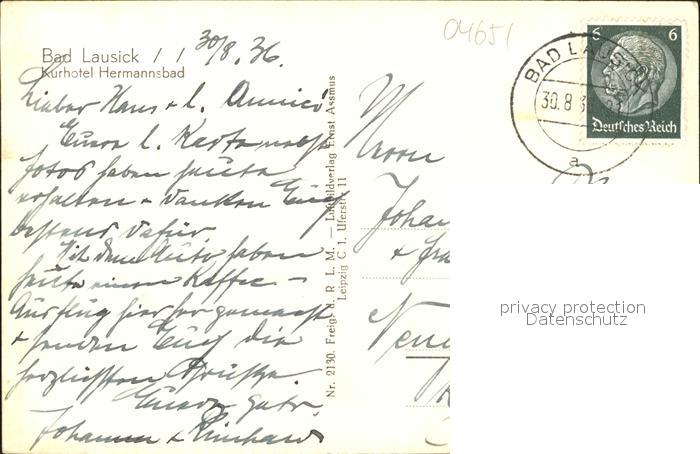 04651
Bad Lausick / / 30/8. 36.
Kurhotel Hermannsbad
Lieber Hans + l. Annici
Eure l. Karte nebst
fotos haben heute
erhalten + danken Euch
bestens dafür.
Mit dem Auto haben
heute einen Kaffee-
Ausflug hierher gemacht
+ senden Euch die
herzlichsten Grüsse.
Eure Gebr.
Johannes + Reinhard
Nr. 2130. Freig. d. R. L. M. — Luftbildverlag Ernst Assmus
Leipzig C 1, Uferstr. 11
BAD LAUSICK
30.8.3
a
6 6
Deutsches Reich
Herrn
Johan
+ Fra
privacy protection
Datenschutz